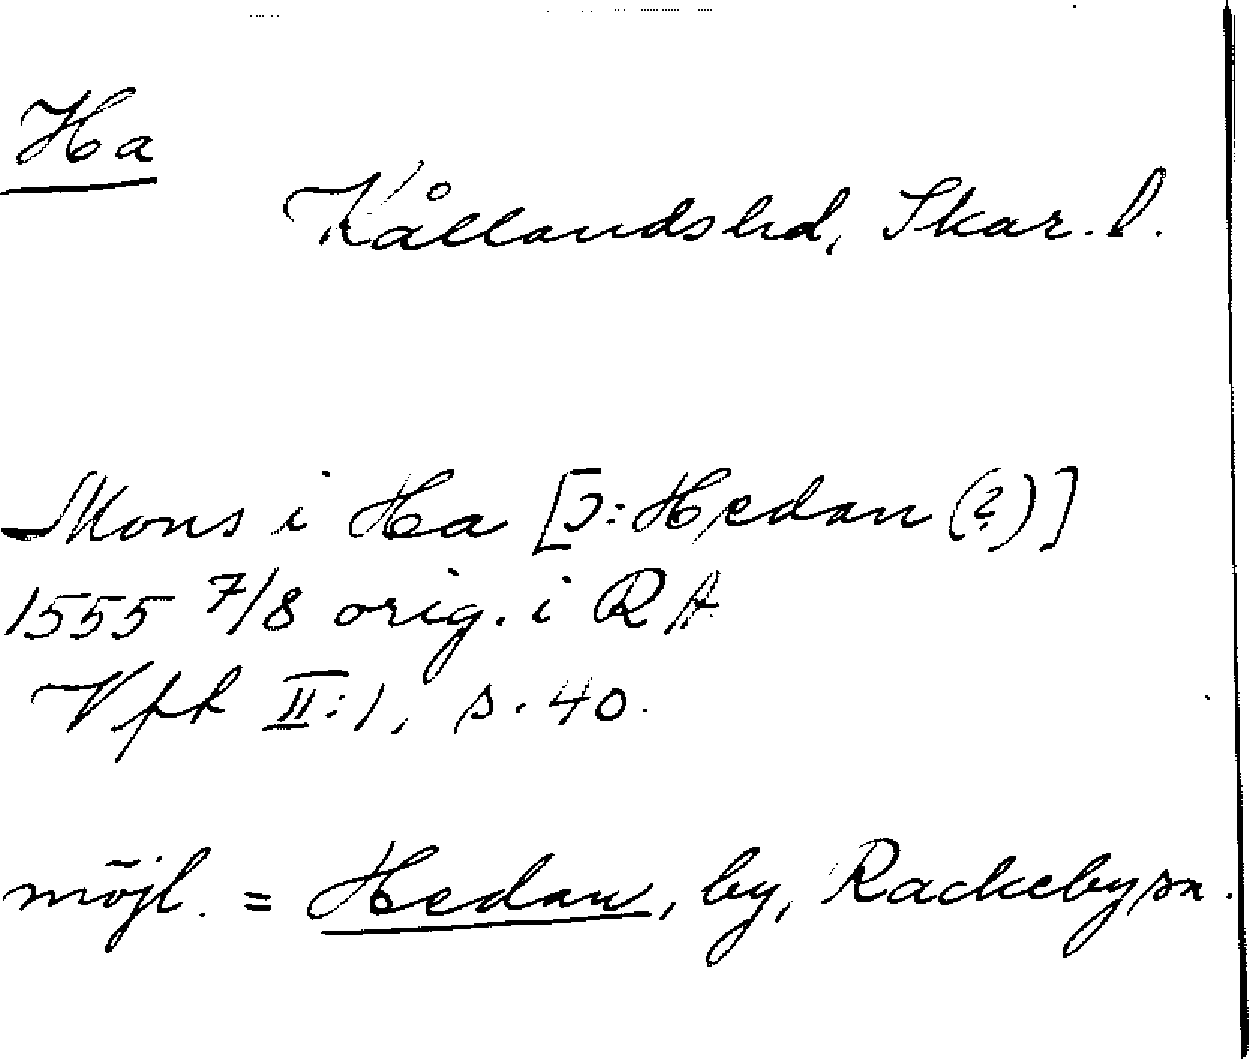 Ha
Kållandshd, Skar. l.
Mons i Ha [ɔ: Hedan (?)]
1555 7/8 orig. i RA
Vfk II:1, s. 40.
möjl. = Hedan, by, Rackeby sn.